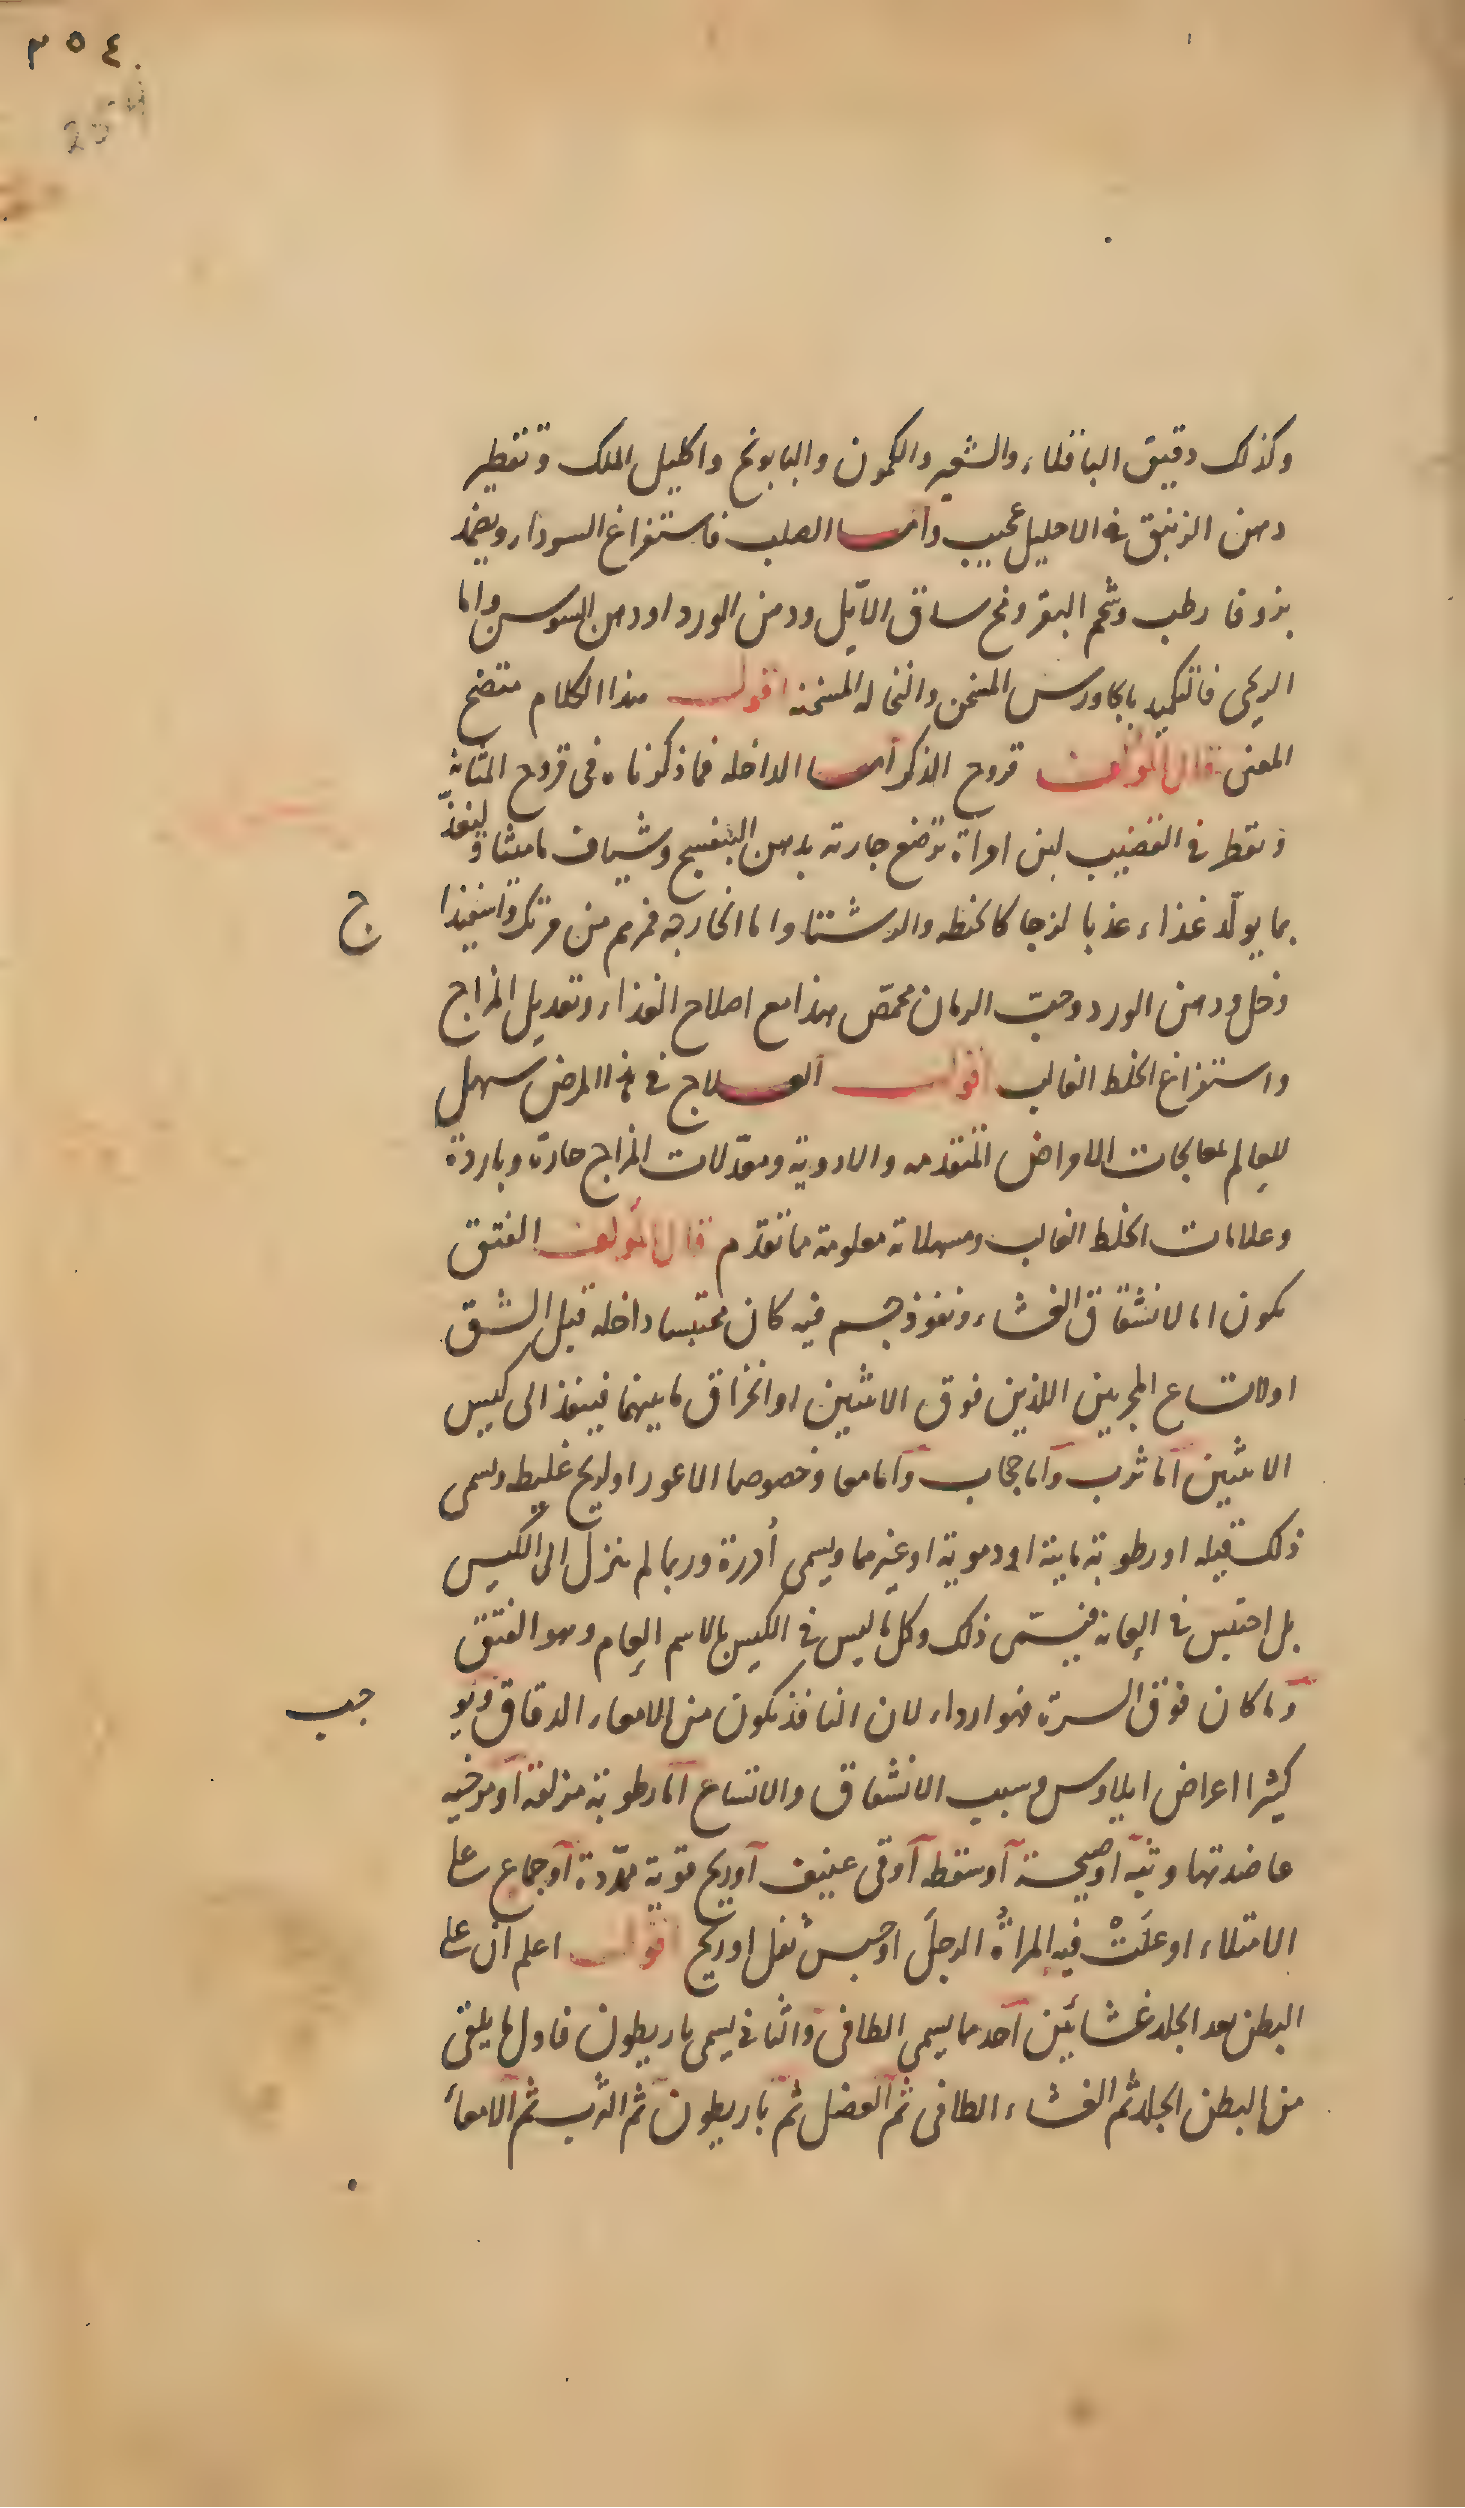 ٣٥٤
254
وكذلك دقيق الباقلاء والشعير والكمون والبابونج واكليل الملك وتقطير
دهن الزنبق في الاحليل عجيب واما الصلب فاستفراغ السوداء ويضمد
بزوفا رطب وشحم البقر ومخ ساق الآيل ودهن الورد اودهن السوسن واما
الريحي فالتكميد بالجاورس المسخن والنخاله المسخنه اقول هذا الكلام متضح
المعنى قال المؤلف قروح الذكر اما الداخله فما ذكرناه في قروح المثانه
وتقطر في القضيب لبن امراة ترضع جارية بدهن البنفسج وشياف ماميثا وليغذّ
بما يولّد غذاء عذبا لزجا كالحنطه والرشتا واما الخارجه فمرهم من مرتك واسفيذا
ج
وخل ودهن الورد وحبّ الرمان محمص هذا مع اصلاح الغذاء وتعديل المزاج
واستفراغ الخلط الغالب اقول العلاج في هذا المرض سهل
للعالم لمعالجات الامراض المتقدمه والادوية ومعدّلات المزاج حارة وباردة
وعلامات الخلط الغالب ومسهلاته معلومة مما تقدّم قال المؤلف الفتق
يكون اما لانشقاق الغشاء ونفوذ جسم فيه كان محتبسا داخله قبل الشق
اولاتساع المجريين اللذين فوق الانثيين او انخراق ما بينهما فينفذ الى كيس
الانثيين اما ثرب واما حجاب واما معا وخصوصا الاعور اولريح غليظ ويسمى
ذلك قيله اورطوبة مايية او دموية اوغيرهما ويسمى أدرة وربما لم ينزل الى الكيس
بل احتبس في العانه فيسمّى ذلك وكل ما ليس في الكيس بالاسم العام وهو الفتق
وما كان فوق السرة فهو اردا، لان النافذ يكون من الامعاء الدقاق ويو
جب
كثيرا اعراض ايلاوس وسبب الانشقاق والاتساع اما رطوبة مزلقة او مرخيه
عاضدتها وثبه اوصيحة اوسقطه اوقي عنيف اوريح قوية ممدّدة اوجماع على
الامتلاء اوعلَتْ فيه المراةُ الرجلَ اوحبس ثفل اوريح اقول اعلم ان على
البطن بعد الجلد غشائين احدهما يسمى الطافي والثاني يسمى باريطون فاول ما يلقى
من البطن الجلد ثم الغشاء الطافي ثم العضل ثم باريطون ثم الثرب ثم الامعاء